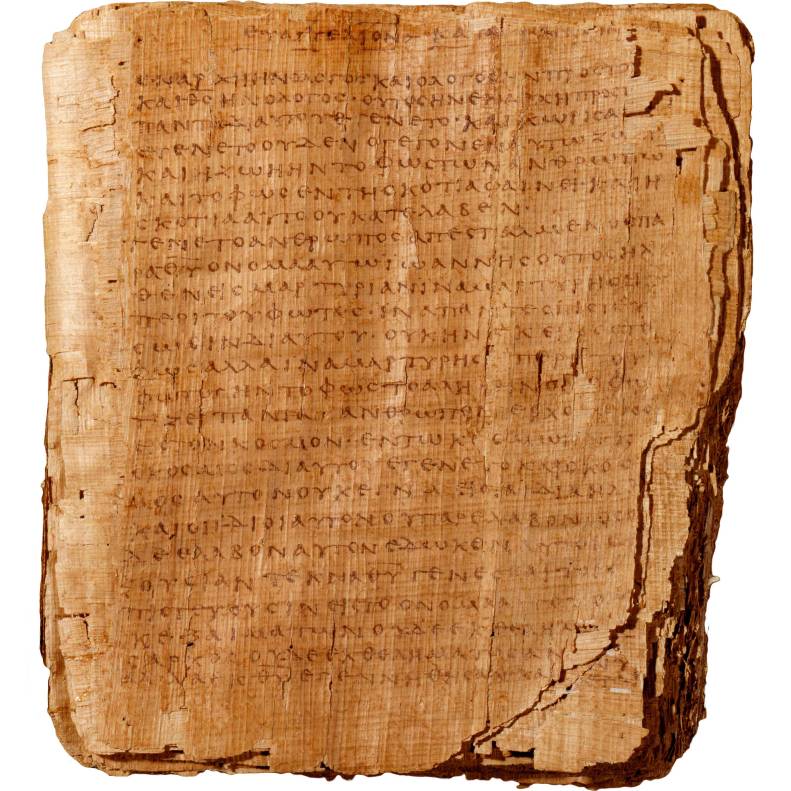 ΕΥΑΓΓΕΛΙΟΝ ΚΑΤΑ
ΕΝ ΑΡΧΗ ΗΝ Ο ΛΟΓΟϹ ΚΑΙ Ο ΛΟΓΟϹ ΗΝ ΠΡΟϹ
ΚΑΙ ΘϹ ΗΝ Ο ΛΟΓΟϹ · ΟΥΤΟϹ ΗΝ ΕΝ ΑΡΧΗ ΠΡΟϹ
ΠΑΝΤΑ ΔΙ ΑΥΤΟΥ ΕΓΕΝΕΤΟ · ΚΑΙ ΧΩΡΙϹ
ΕΓΕΝΕΤΟ ΟΥΔΕΝ Ο ΓΕΓΟΝΕΝ ΕΝ ΑΥΤΩ ΖΩΗ
ΚΑΙ Η ΖΩΗ ΗΝ ΤΟ ΦΩϹ ΤΩΝ ΑΝΘΡΩΠΩ
ΚΑΙ ΤΟ ΦΩϹ ΕΝ ΤΗ ϹΚΟΤΙΑ ΦΑΙΝΕΙ · ΚΑΙ Η
ϹΚΟΤΙΑ ΑΥΤΟ ΟΥ ΚΑΤΕΛΑΒΕΝ ·
ΕΓΕΝΕΤΟ ΑΝΘΡΩΠΟϹ ΑΠΕϹΤΑΛΜΕΝΟϹ ΠΑ
ΡΑ ΘΥ ΟΝΟΜΑ ΑΥΤΩ ΙΩΑΝΝΗϹ ΟΥΤΟϹ ΗΛ
ΘΕΝ ΕΙϹ ΜΑΡΤΥΡΙΑΝ ΙΝΑ ΜΑΡΤΥΡΗϹΗ
ΠΕΡΙ ΤΟΥ ΦΩΤΟϹ · ΙΝΑ ΠΑΝΤΕϹ ΠΙϹΤΕΥ
ϹΩϹΙΝ ΔΙ ΑΥΤΟΥ ΟΥΚ ΗΝ ΕΚΕΙΝΟϹ ΤΟ
ΦΩϹ ΑΛΛΑ ΙΝΑ ΜΑΡΤΥΡΗϹΗ ΠΕΡΙ ΤΟΥ
ΦΩΤΟϹ ΗΝ ΤΟ ΦΩϹ ΤΟ ΑΛΗΘΙΝΟΝ Ο ΦΩ
ΤΙΖΕΙ ΠΑΝΤΑ ΑΝΘΡΩΠΟΝ ΕΡΧΟΜΕΝΟΝ
ΕΙϹ ΤΟΝ ΚΟϹΜΟΝ · ΕΝ ΤΩ ΚΟϹΜΩ ΗΝ
Ο ΚΟϹΜΟϹ ΔΙ ΑΥΤΟΥ ΕΓΕΝΕΤΟ ΚΑΙ Ο ΚΟϹ
ΜΟϹ ΑΥΤΟΝ ΟΥΚ ΕΓΝΩ ΕΙϹ ΤΑ ΙΔΙΑ ΗΛ
ΚΑΙ ΟΙ ΙΔΙΟΙ ΑΥΤΟΝ ΟΥ ΠΑΡΕΛΑΒΟΝ
ΔΕ ΕΛΑΒΟΝ ΑΥΤΟΝ ΕΔΩΚΕΝ ΑΥΤΟΙϹ
ΞΟΥϹΙΑΝ ΤΕΚΝΑ ΘΥ ΓΕΝΕϹΘΑΙ
ΠΙϹΤΕΥΟΥϹΙΝ ΕΙϹ ΤΟ ΟΝΟΜΑ
ΟΥΚ ΕΞ ΑΙΜΑΤΩΝ ΟΥΔΕ ΕΚ
ϹΑΡΚΟϹ ΟΥΔΕ ΕΚ ΘΕΛΗΜΑΤΟϹ ΑΝ
ΑΛΛΑ ΕΚ ΘΥ ΕΓΕΝΝΗΘΗϹΑΝ